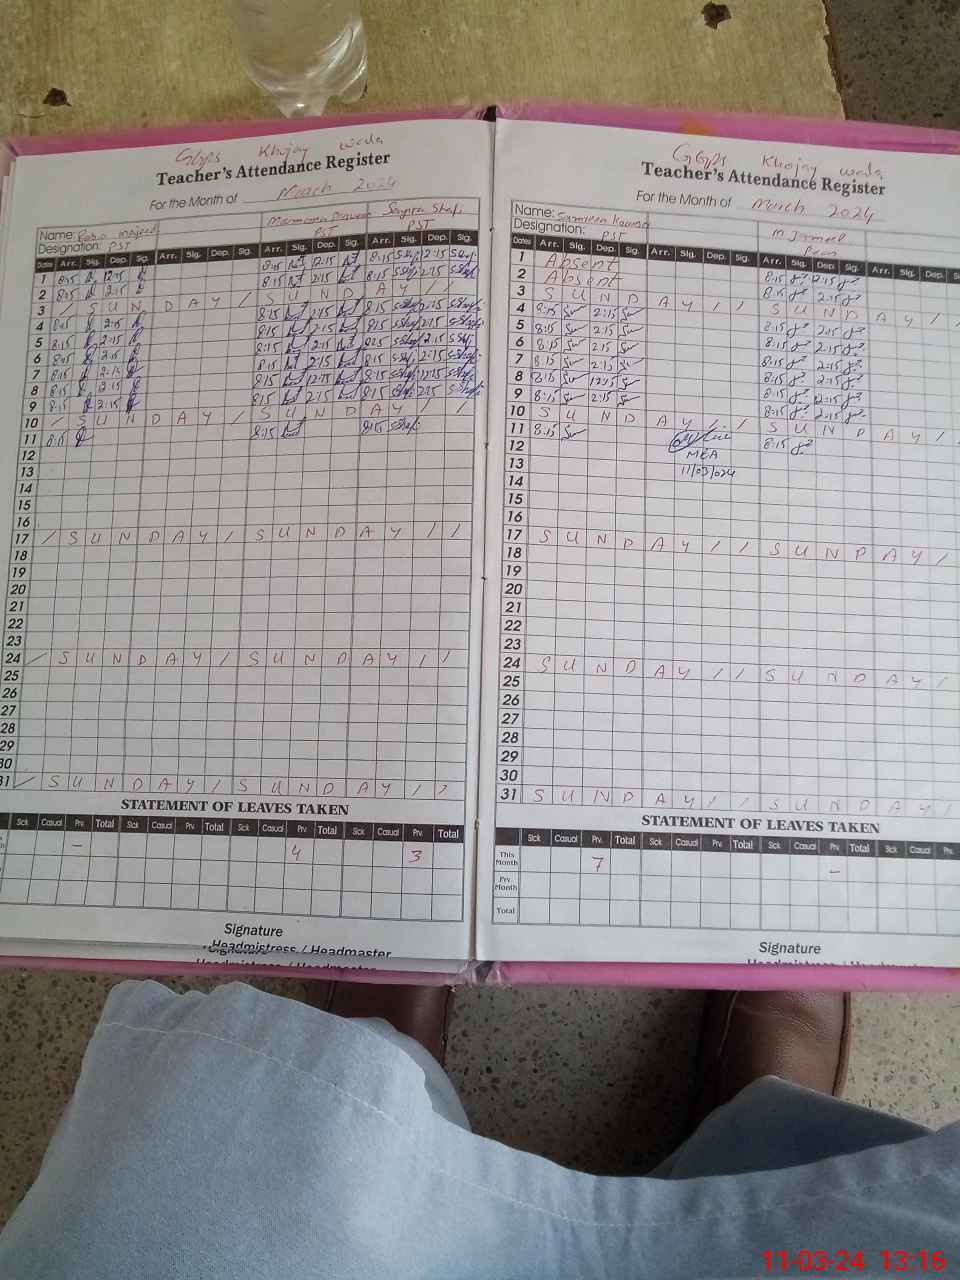 GGPS Khojay wala
Teacher's Attendance Register
For the Month of March 2024
Name:
Designation: PST PST PST
Dates Arr. Sig. Dep. Sig. Arr. Sig. Dep. Sig. Arr. Sig. Dep. Sig. Arr. Sig. Dep. Sig.
1 8:15 12:15 8:15 12:15 8:15 12:15
2 8:15 2:15 8:15 2:15 8:15 2:15
3 / S U N D A Y / S U N D A Y / /
4 8:15 2:15 8:15 2:15 8:15 2:15
5 8:15 2:15 8:15 2:15 8:15 2:15
6 8:15 2:15 8:15 2:15 8:15 2:15
7 8:15 2:15 8:15 2:15 8:15 2:15
8 8:15 12:15 8:15 12:15 8:15 12:15
9 8:15 2:15 8:15 2:15 8:15 2:15
10 / S U N D A Y / S U N D A Y / /
11 8:15 8:15 8:15
12
13
14
15
16
17 / S U N D A Y / S U N D A Y / /
18
19
20
21
22
23
24 / S U N D A Y / S U N D A Y / /
25
26
27
28
29
30
31 / S U N D A Y / S U N D A Y / /
STATEMENT OF LEAVES TAKEN
Sick Casual Prv. Total Sick Casual Prv. Total Sick Casual Prv. Total
- 4 3
Signature
Headmistress / Headmaster
GGPS Khojay wala
Teacher's Attendance Register
For the Month of March 2024
Name: M Jameel
Designation: PST
Dates Arr. Sig. Dep. Sig. Arr. Sig. Dep. Sig. Arr. Sig. Dep. Sig. Arr. Sig.
1 Absent 8:15 12:15
2 Absent 8:15 2:15
3 S U N D A Y / / S U N D A Y /
4 8:15 2:15 8:15 2:15
5 8:15 2:15 8:15 2:15
6 8:15 2:15 8:15 2:15
7 8:15 2:15 8:15 2:15
8 8:15 12:15 8:15 12:15
9 8:15 2:15 8:15 2:15
10 S U N D A Y / / S U N D A Y /
11 8:15 8:15
12 MEA
13 11/03/024
14
15
16
17 S U N D A Y / / S U N D A Y /
18
19
20
21
22
23
24 S U N D A Y / / S U N D A Y /
25
26
27
28
29
30
31 S U N D A Y / / S U N D A Y /
STATEMENT OF LEAVES TAKEN
Sick Casual Prv. Total Sick Casual Prv. Total Sick Casual Prv. Total Sick Casual Prv.
This Month 7 -
Prv. Month
Total
Signature
11-03-24 13:16